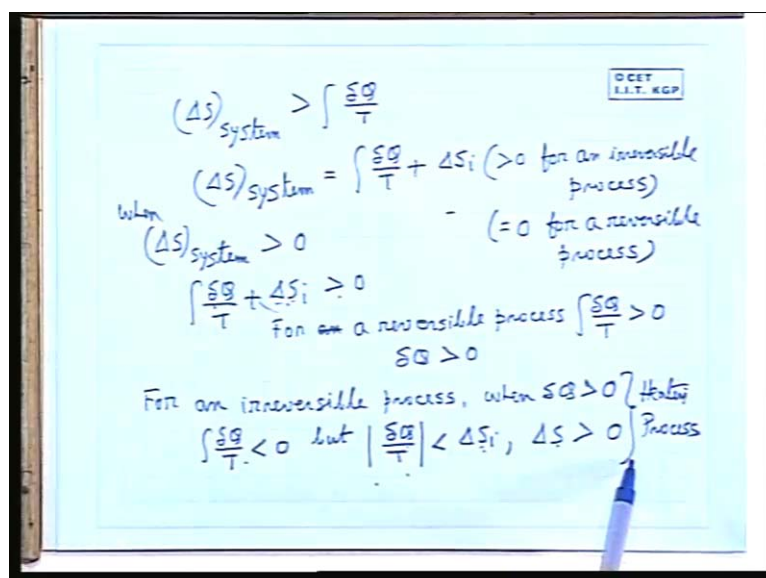 © CET
I.I.T. KGP
(ΔS)system > ∫ δQ/T
(ΔS)system = ∫ δQ/T + ΔSi (>0 for an irreversible
process)
when
- (=0 for a reversible
process)
(ΔS)system > 0
∫ δQ/T + ΔSi > 0
For a reversible process ∫ δQ/T > 0
δQ > 0
For an irreversible process, when δQ > 0 } Heating
∫ δQ/T < 0 but | δQ/T | < ΔSi, ΔS > 0 } Process